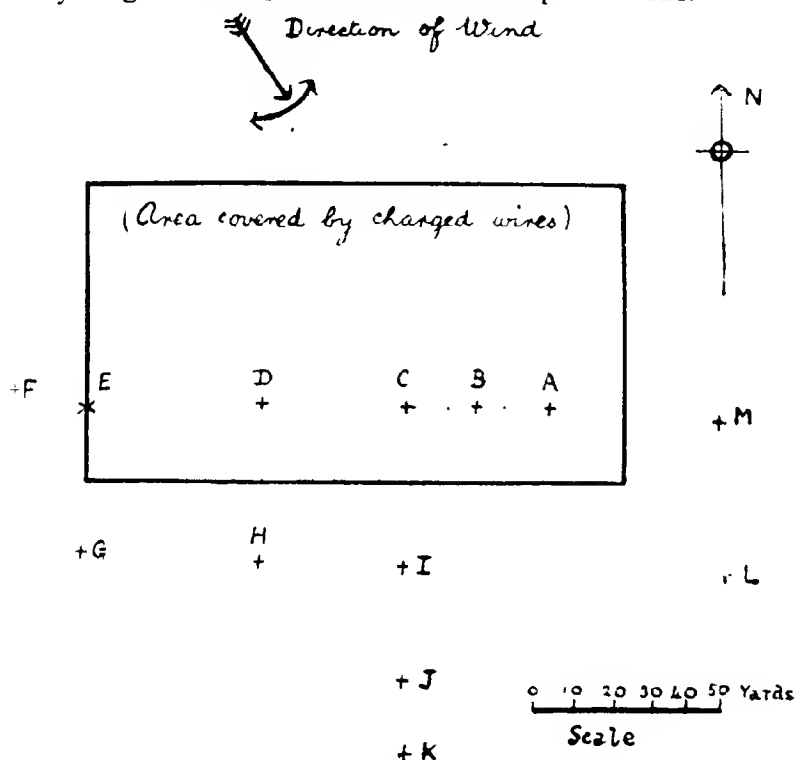 Direction of Wind
N
(Area covered by charged wires)
F E D C B A
M
G H I L
J
0 10 20 30 40 50 Yards
Scale
K